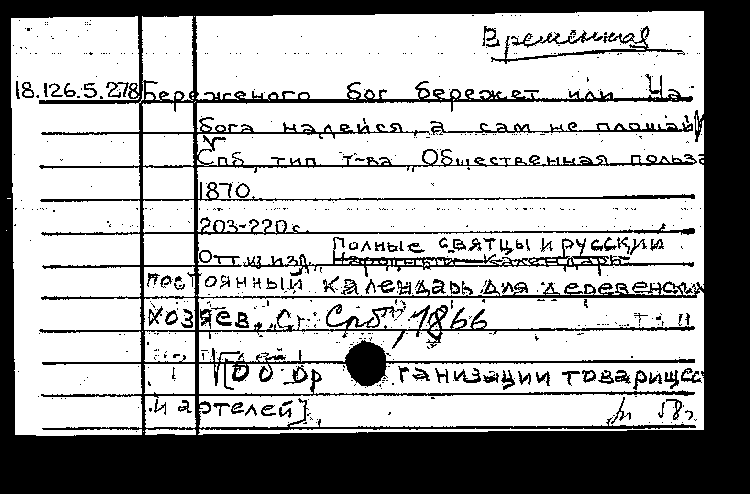 Временная
18.126.5.278 Береженого бог бережет или На
бога надейся, а сам не плошай
Спб, тип т-ва „Общественная польза
1870.
203-220 с.
Отт. из изд. „ Полные святцы и русский
Народный календарь
постоянный календарь для деревенских
хозяев„, Спб, 1866
[Об ор ганизации товарищес
и артелей].
58г.